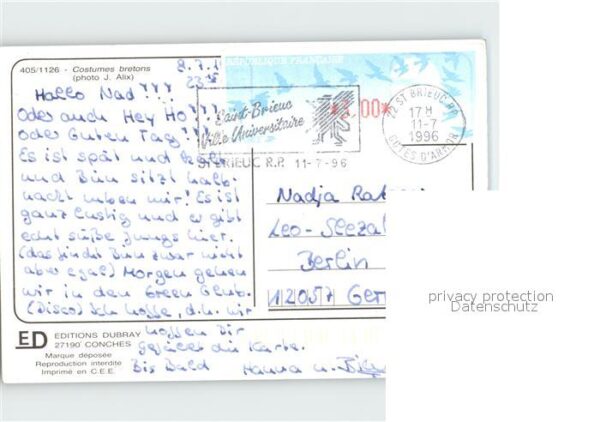 405/1126 - Costumes bretons
(photo J. Alix)
RÉPUBLIQUE FRANÇAISE
Saint-Brieuc
Ville Universitaire
*3,00*
22 ST BRIEUC RP
17 H
11-7
1996
COTES D'ARMOR
ST BRIEUC R.P. 11-7-96
Hallo Nad!!!
Oder auch Hey Ho!!!
oder Guten Tag!!!
Es ist spät und kalt
und Bun sitzt halb-
nackt neben mir! Es ist
ganz lustig und es gibt
echt süße Jungs hier.
(das findet Bun zwar nicht
aber egal) Morgen gehen
wir in den Green Club.
(Disco) Ich hoffe, d.h. wir
hoffen Dir
gefällt die Karte.
Bis Bald Hanna u.
Nadja
Leo-Slezak
Berlin
12057 Ger
ED EDITIONS DUBRAY
27190 CONCHES
Marque déposée
Reproduction interdite
Imprimé en C.E.E.
privacy protection
Datenschutz